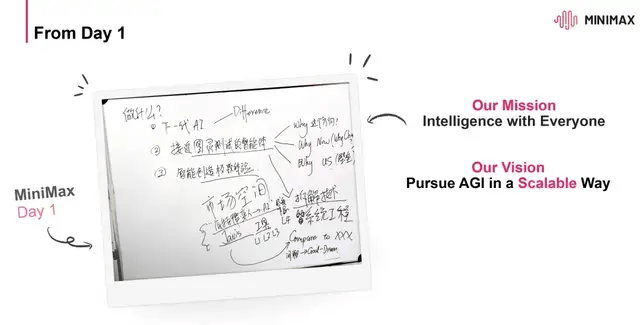 From Day 1
MINIMAX
做什么?
① 下一代 AI
Difference
② 接近图灵测试的智能体
③ 智能创造指数体验
Why 这个方向?
Why Now
Why US
市场空间
拆解
系统工程
L1 L2 L3
L4
Compare to XXX
MiniMax
Day 1
Our Mission
Intelligence with Everyone
Our Vision
Pursue AGI in a Scalable Way